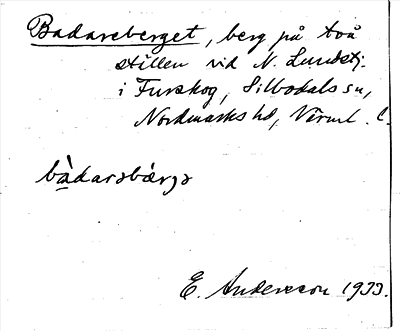 Badareberget, berg på två
ställen vid N. Lundstj.
i Furskog, Silbodals sn,
Nordmarks hd, Värml. l.
bàdarəbærgə
E. Andersson 1933.